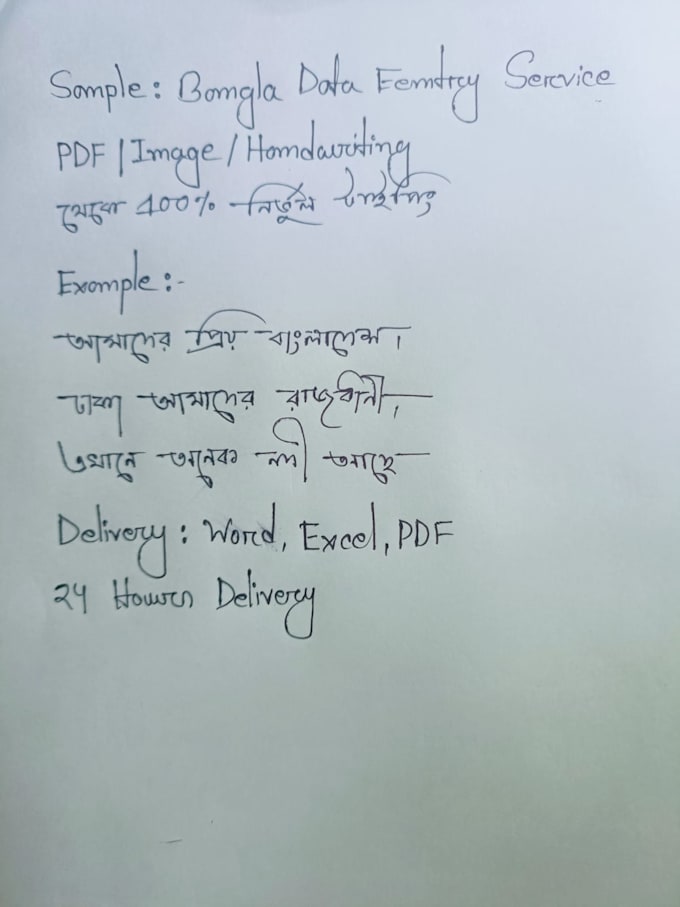 Sample: Bangla Data Eentry Service
PDF | Image / Handwriting
থেকে 100% নির্ভুল টাইপিং
Example :-
আমাদের প্রিয় বাংলাদেশ।
ঢাকা আমাদের রাজধানী।
এখানে অনেক নদী আছে
Delivery : Word, Excel, PDF
24 Hours Delivery